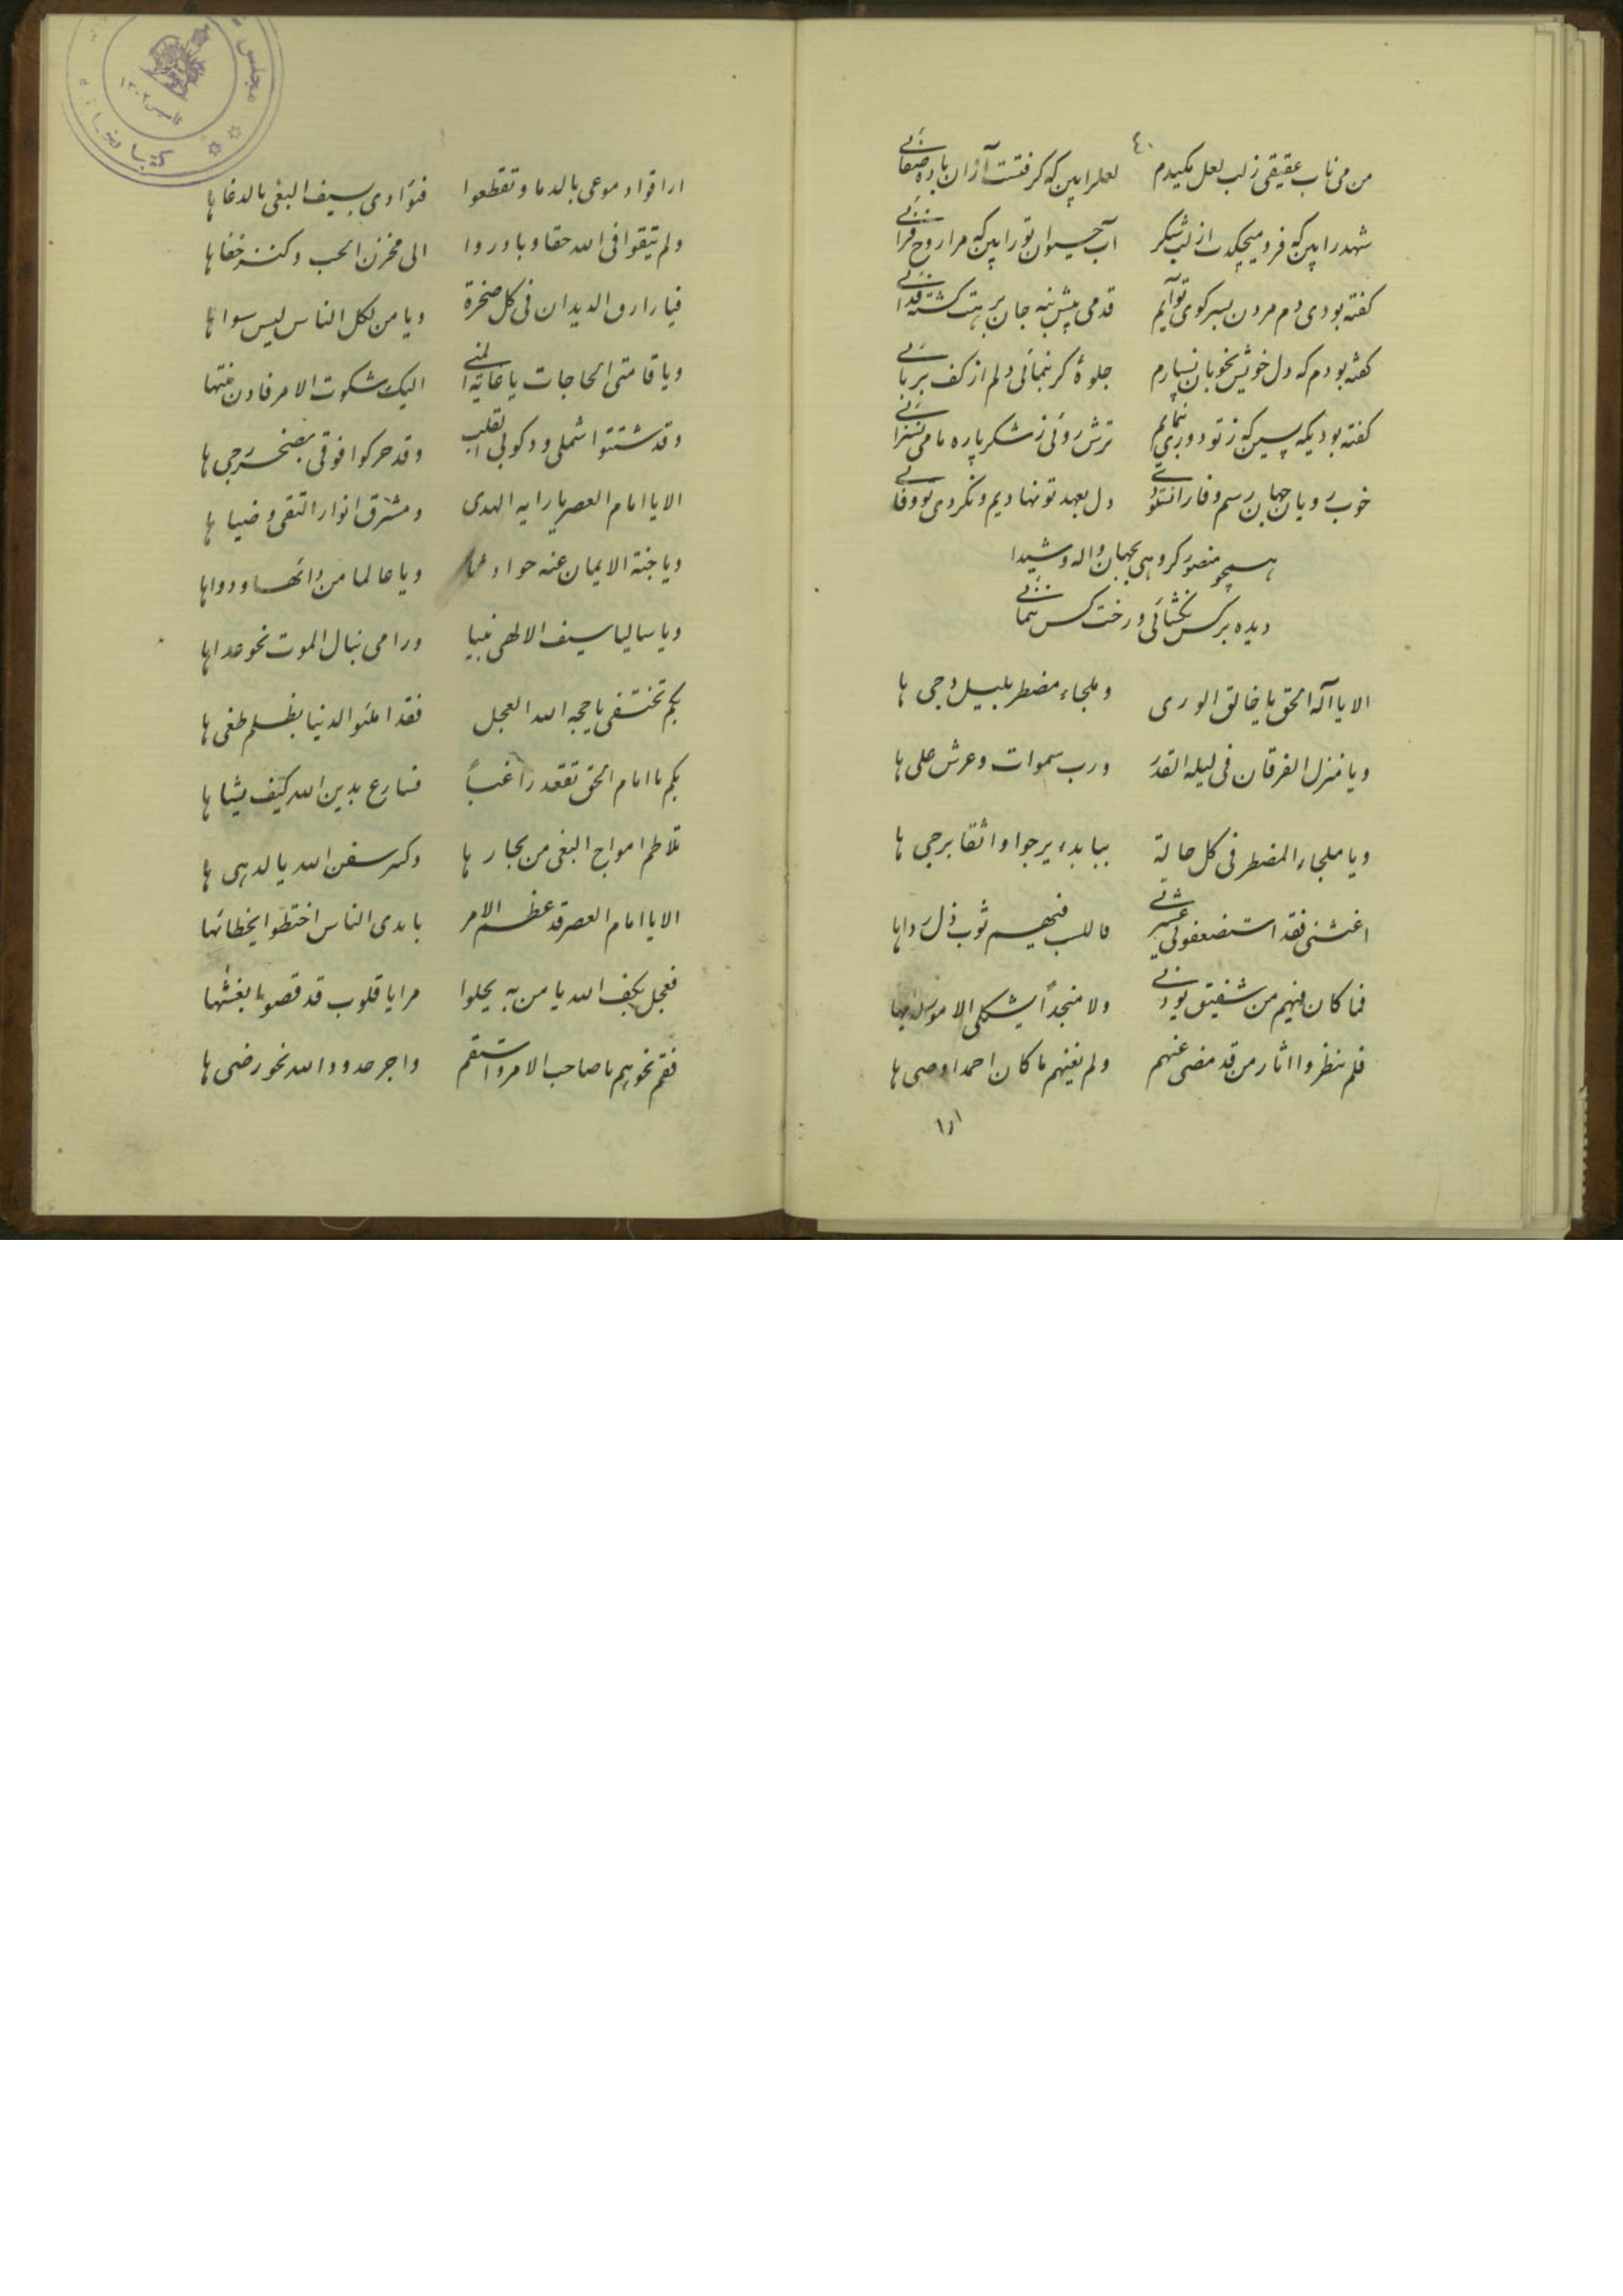 ٤٠
من می ناب عقیقی ز لب لعل مکیدم لعل را بین که گرفتست از آن باده صفائی
شهد را بین که فرو میچکدت از لب شکر آب حیوان تو را بین که مرا روح فزائی
کفته بودی دم مردن بسر کوی تو آیم قدمی پیش بنه جان برهت کشته فدائی
کفته بودم که دل خویش بخوبان نسپارم جلوهٔ کر بنمائی دلم از کف بربائی
کفته بودیکه پسر که ز تو دوری بنمایم ترش روئی ز شکر پاره ما می نسزائی
خوب رویان جهان رسم وفا را دل بعهد تو نهادیم و نکردی تو وفائی
همچو منصور کروهی بجهان واله و شیدا
دیده بر کس نکشائی و رخت کس ننمائی
الا یا اله الحق یا خالق الوری وملجاء مضطر بلیل دجی ها
ویا منزل الفرقان فی لیله القدر ورب سموات وعرش علی ها
ویا ملجاء المضطر فی کل حالة ببابه یرجوا واثقا برجی ها
اغثنی فقد استضعفونی ثوب ذل رداها
فما کان فیهم من شفیق ولا منجداً یشکی الامور
فلم ینظروا اثار من قد مضی عنهم ولم یغنهم ما کان احمد اوصی ها
اراقوا دموعی بالدما وتقطعوا فؤادی بسیف البغی بالدغا ها
ولم یتقوا فی الله حقا وبادروا الی مخزن الحب وکنز خفا ها
فیا رازق الدیدان فی کل صخرة ویا من لکل الناس لیس سوا ها
ویا قاضی الحاجات یا غایة المنی الیک شکوت الامر فادن منتها
وقد شتتوا شملی ودکوا بی وقد حرکوا فوقی بصخر رحی ها
الا یا امام العصر یا رایه الهدی ومشرق انوار التقی وضیا ها
ویا جنة الایمان عنه حوادث ویا عالما من دائها ودواها
ویا سالیا سیف الالهی ورامی نبال الموت نحو عداها
بکم تختفی یا حجه الله العجل فقد املئوا الدنیا بظلم طغی ها
بکم یا امام الحق تقعد راغباً فسارع بدین الله کیف یشا ها
تلاطم امواج البغی من بحار ها وکسر سفن الله یا لدهی ها
الا یا امام العصر قد عظم الامر بایدی الناس اختطوا بخطائها
فعجل بکف الله یا من به یجلوا مرایا قلوب قد
فقم نحوهم یا صاحب الامر واستقم واجر حدود الله نحو رضی ها